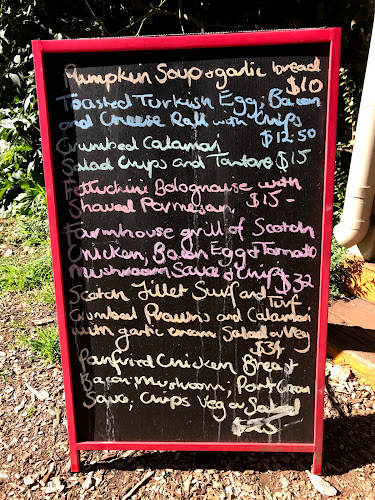 Pumpkin Soup + garlic bread
$10
Toasted Turkish Egg, Bacon
and Cheese Roll with Chips
$12.50
Crumbed Calamari
Salad Chips and Tartare $15
Fettuchini Bolognaise with
Shaved Parmesan $15-
Farmhouse grill of Scotch
Chicken, Bacon Egg & Tomato
Mushroom Sauce & Chips $32
Scotch Fillet Surf and Turf
Crumbed Prawns and Calamari
with garlic cream Salad or Veg
$34
Panfried Chicken Breast
Bacon, Mushroom, Port Cream
Sauce, Chips Veg or Salad